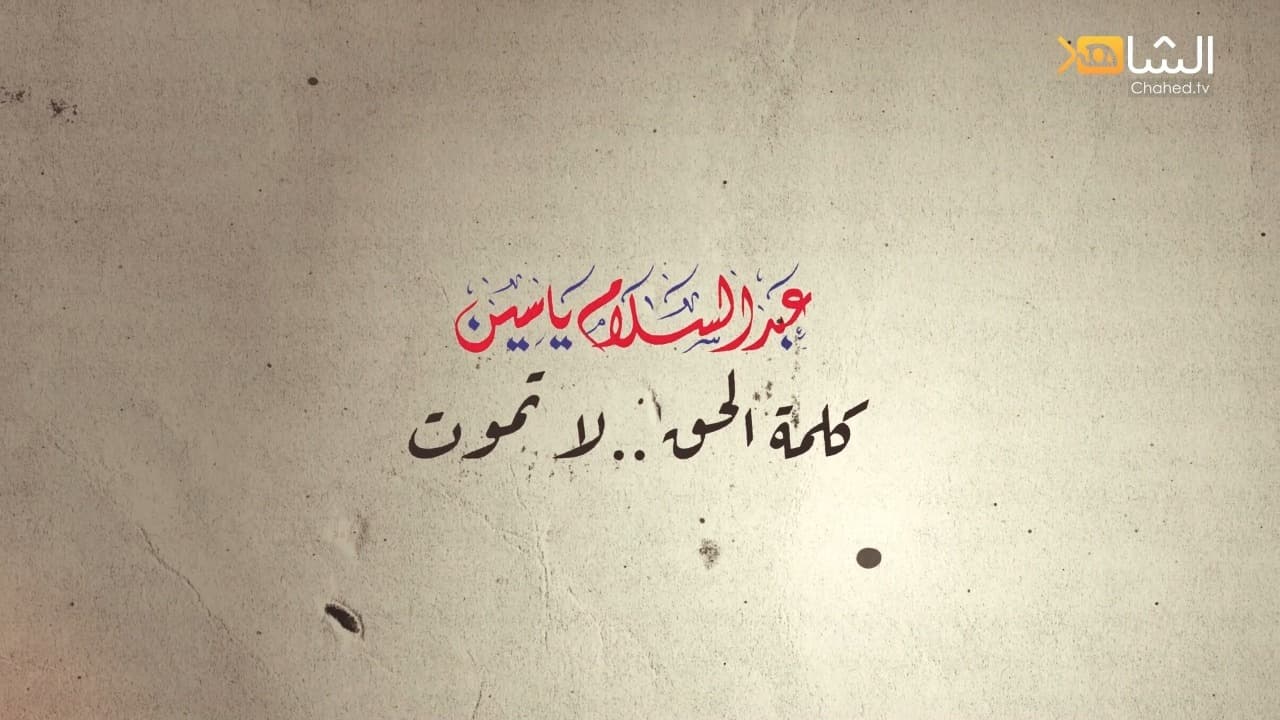 الشاهد
Chahed.tv
عبد السلام ياسين
كلمة الحق .. لا تموت